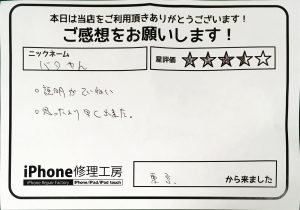 本日は当店をご利用頂きありがとうございます！
ご感想をお願いします！
ニックネーム
星評価
。説明がていねい
。思ったより早く出来た。
iPhone修理工房
iPhone Repair Factory iPhone/iPad/iPod touch
東京 から来ました